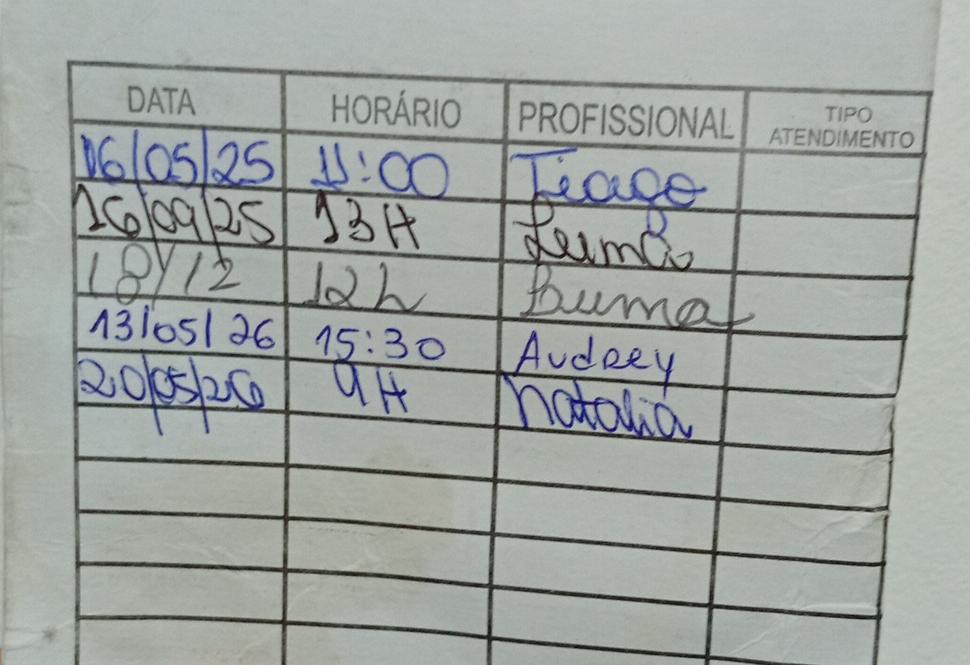 DATA HORÁRIO PROFISSIONAL TIPO ATENDIMENTO
16/05/25 11:00 Tiago
16/09/25 13H Luma
18/12 12h Luma
13/05/26 15:30 Audrey
20/05/26 9H Natalia